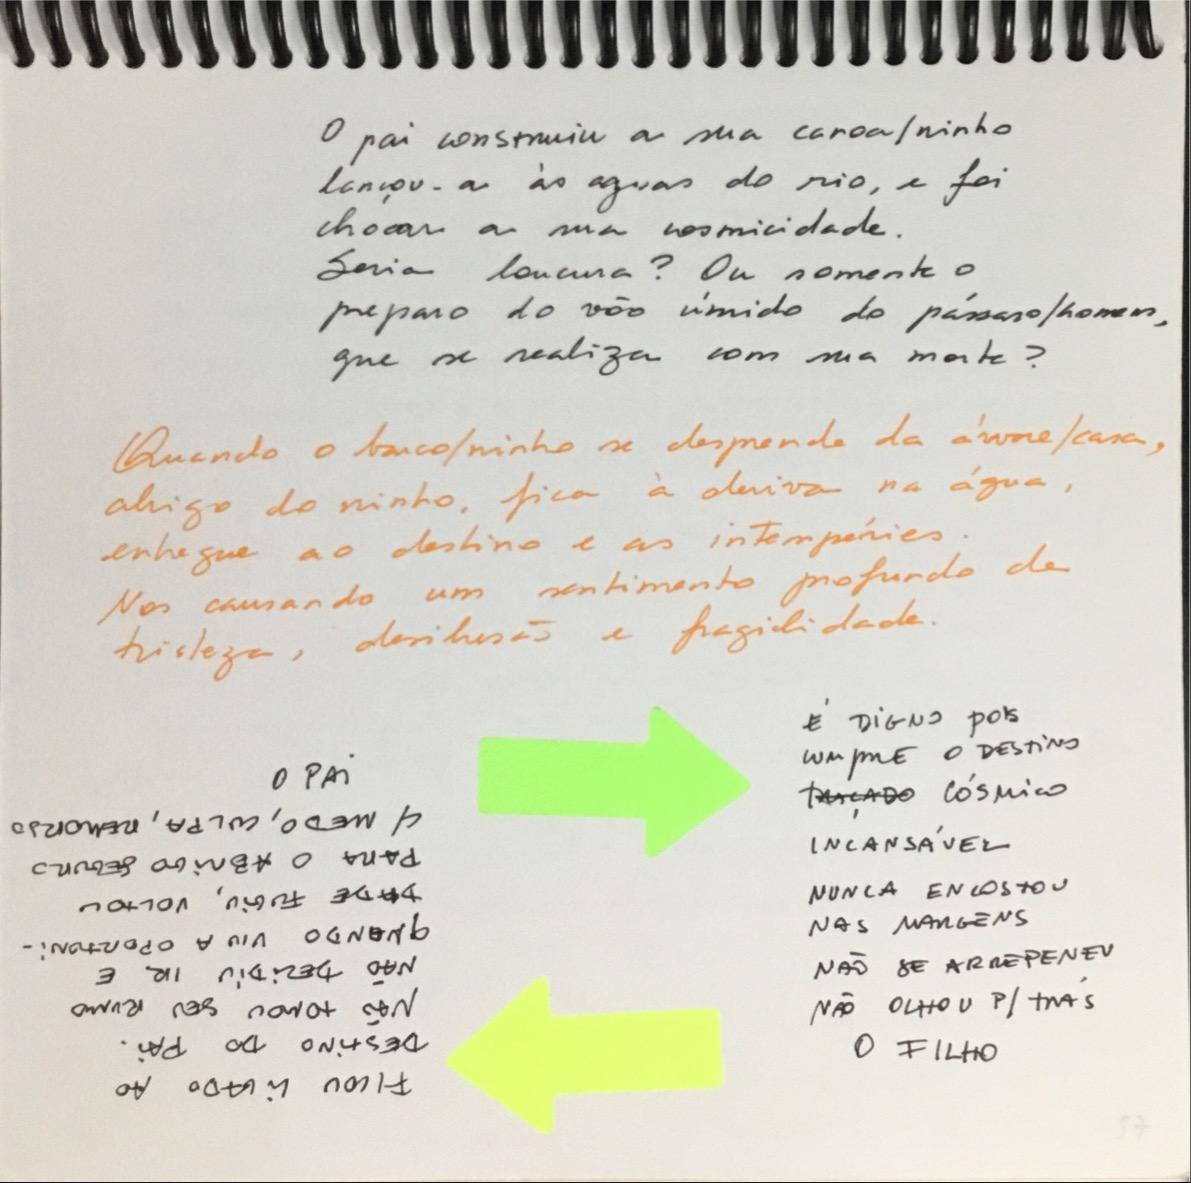 O pai construiu a sua canoa/ninho
lançou-a às aguas do rio, e foi
chocar a sua cosmicidade.
Seria loucura? Ou somente o
preparo do vôo úmido do pássaro/homem,
que se realiza com sua morte?
Quando o barco/ninho se desprende da árvore/casa,
abrigo do ninho, fica à deriva na água,
entregue ao destino e as intempéries.
Nos causando um sentimento profundo de
tristeza, desilusão e fragilidade.
O PAI
É DIGNO POIS
CUMPRE O DESTINO
TRAÇADO CÓSMICO
INCANSÁVEL
NUNCA ENCOSTOU
NAS MARGENS
NÃO SE ARREPENEU
NÃO OLHOU P/ TRÁS
O FILHO
FICOU LIGADO AO
DESTINO DO PAI.
NÃO TOMOU SEU RUMO
NÃO DECIDIU IR E
QUANDO VIU A OPORTUNI-
DADE FUGIU, VOLTOU
PARA O ABRIGO SEGURO
MEDO, CULPA, REMORSO
57